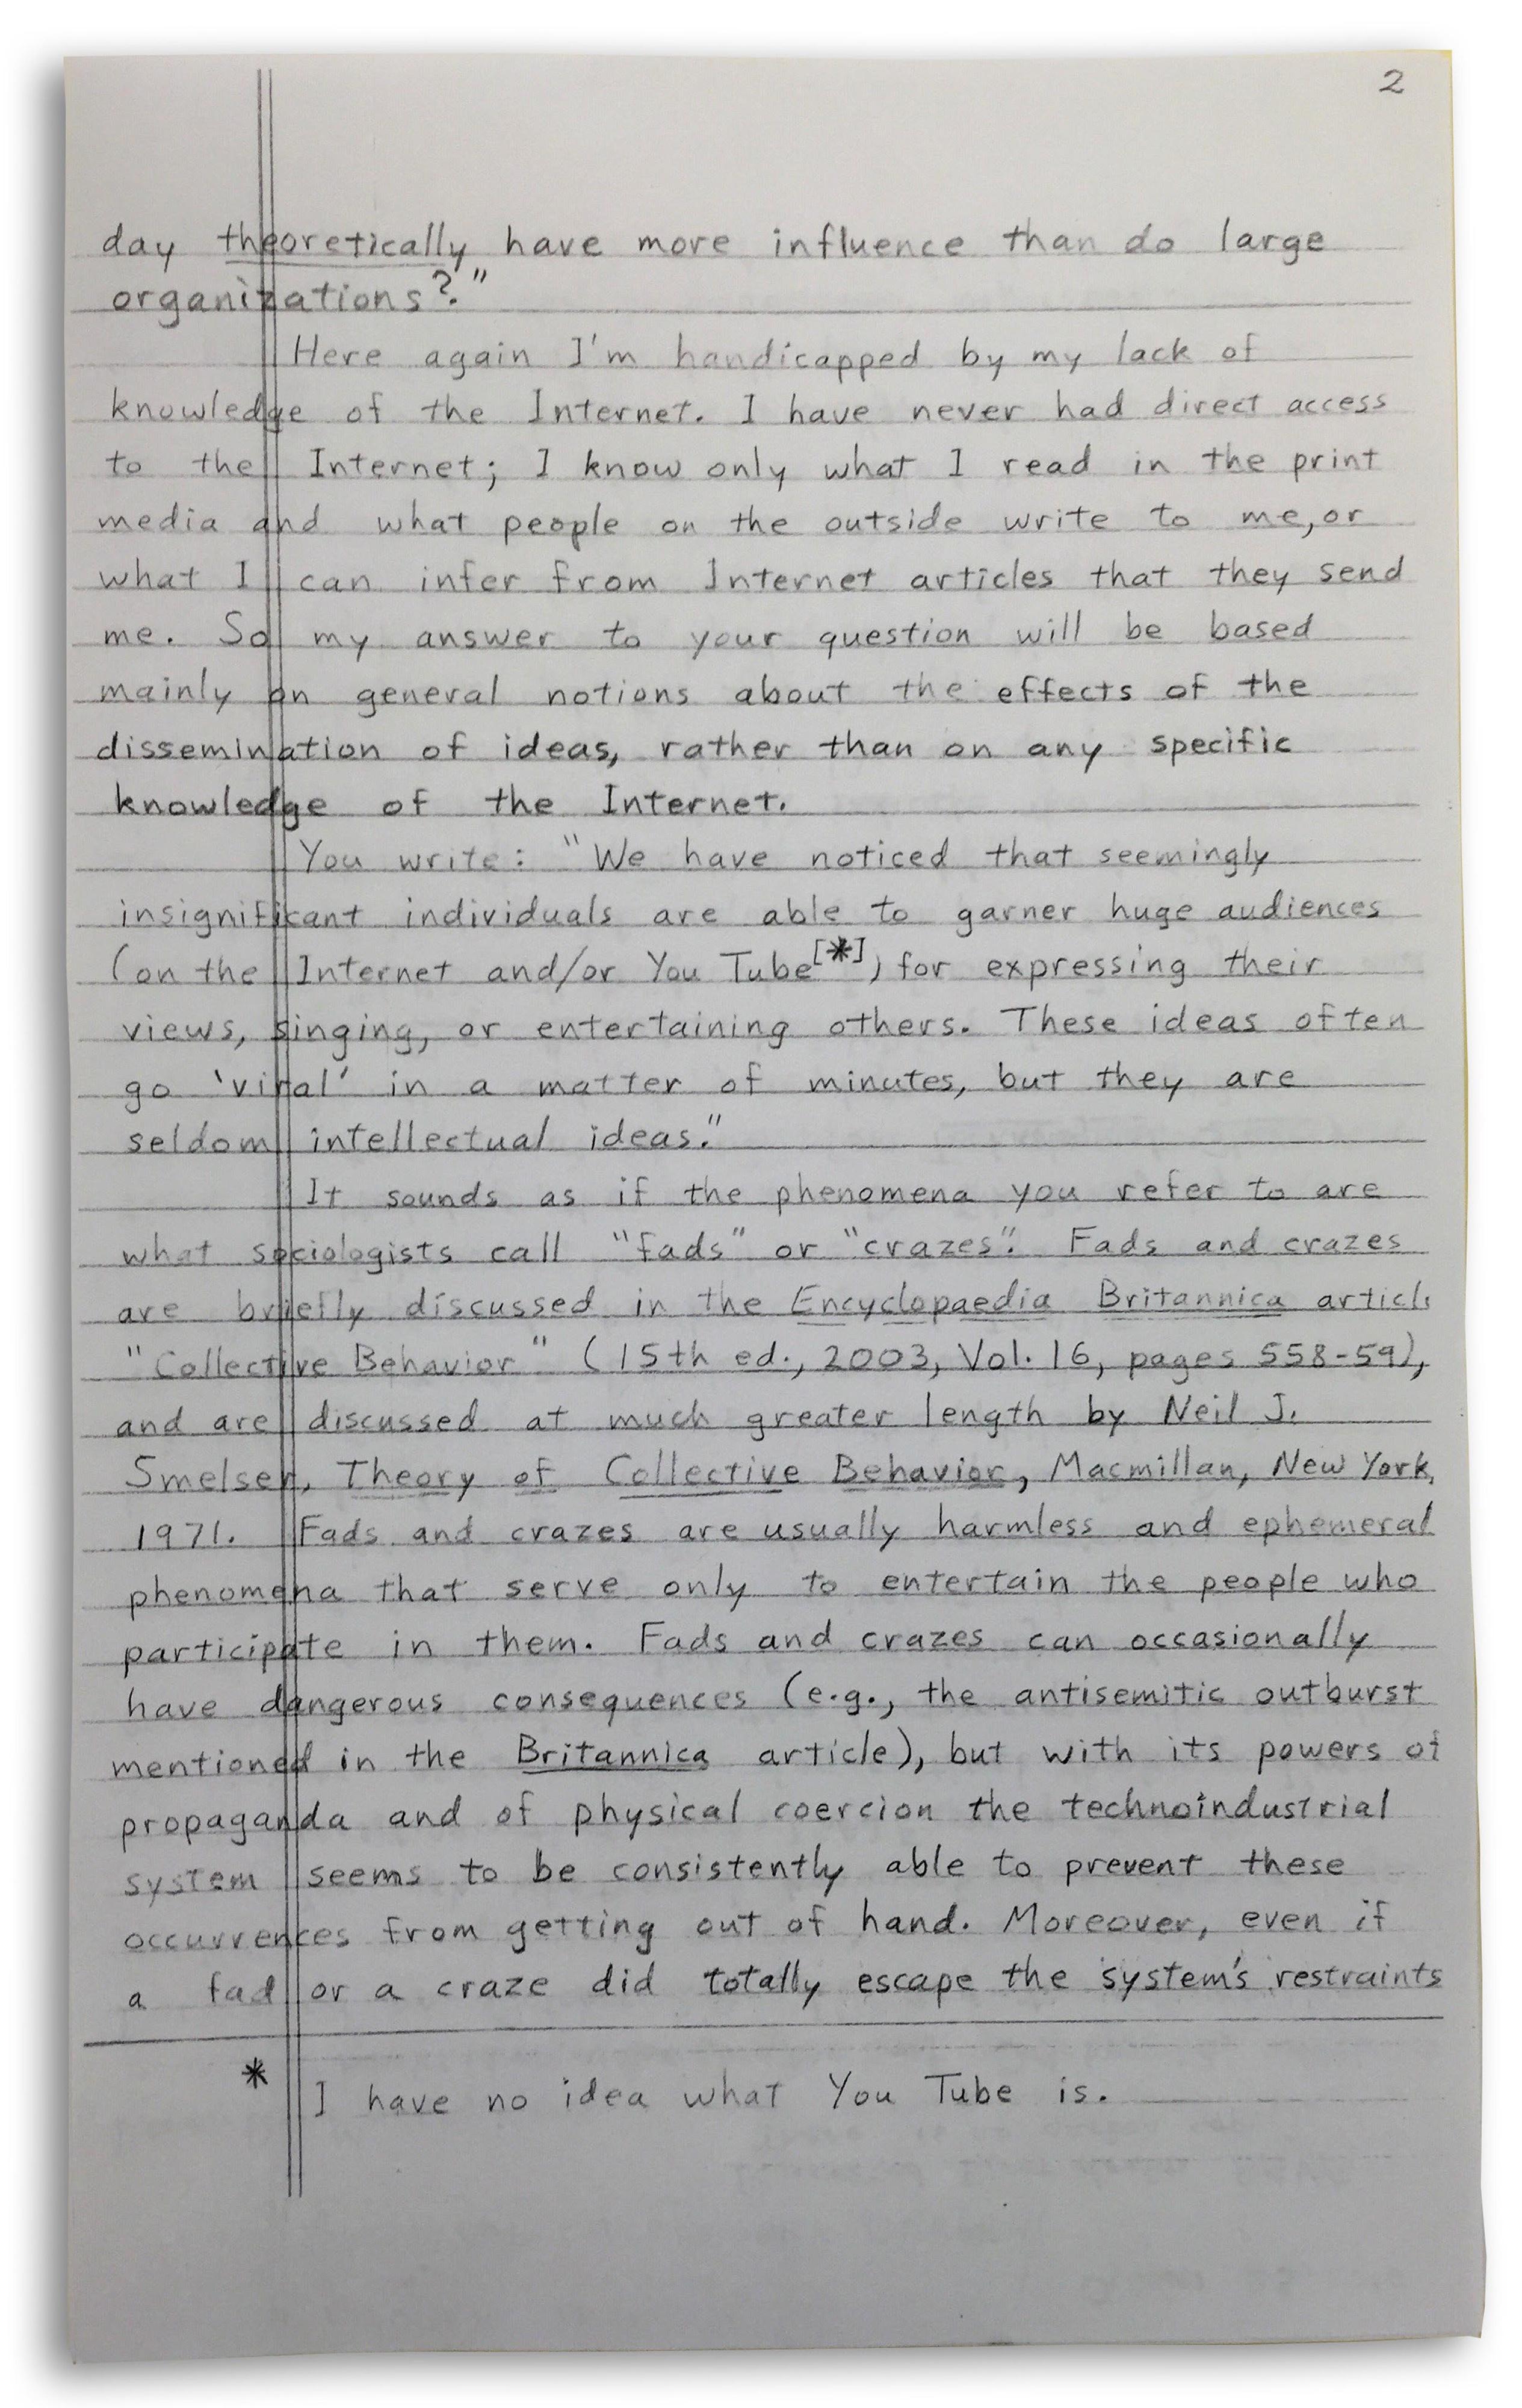 2
day theoretically have more influence than do large
organizations?"
Here again I'm handicapped by my lack of
knowledge of the Internet. I have never had direct access
to the Internet; I know only what I read in the print
media and what people on the outside write to me, or
what I can infer from Internet articles that they send
me. So my answer to your question will be based
mainly on general notions about the effects of the
dissemination of ideas, rather than on any specific
knowledge of the Internet.
You write: "We have noticed that seemingly
insignificant individuals are able to garner huge audiences
(on the Internet and/or You Tube[*]) for expressing their
views, singing, or entertaining others. These ideas often
go 'viral' in a matter of minutes, but they are
seldom intellectual ideas."
It sounds as if the phenomena you refer to are
what sociologists call "fads" or "crazes". Fads and crazes
are briefly discussed in the Encyclopaedia Britannica article
"Collective Behavior" (15th ed., 2003, Vol. 16, pages 558-59),
and are discussed at much greater length by Neil J.
Smelser, Theory of Collective Behavior, Macmillan, New York,
1971. Fads and crazes are usually harmless and ephemeral
phenomena that serve only to entertain the people who
participate in them. Fads and crazes can occasionally
have dangerous consequences (e.g., the antisemitic outburst
mentioned in the Britannica article), but with its powers of
propaganda and of physical coercion the technoindustrial
system seems to be consistently able to prevent these
occurrences from getting out of hand. Moreover, even if
a fad or a craze did totally escape the system's restraints
* I have no idea what You Tube is.